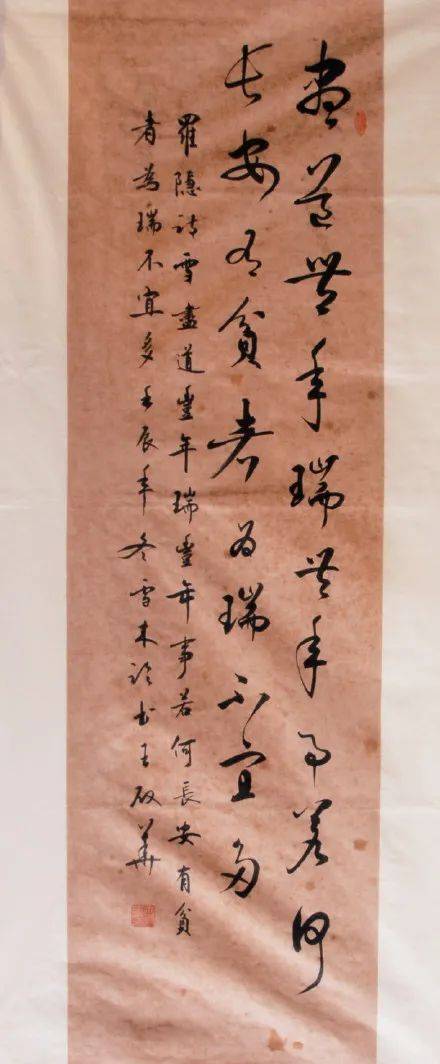 尽道豐年瑞豐年事若何
长安有貧者为瑞不宜多
羅隐诗雪盡道豐年瑞豐年事若何長安有貧
者為瑞不宜多壬辰年冬雪木 书王 華